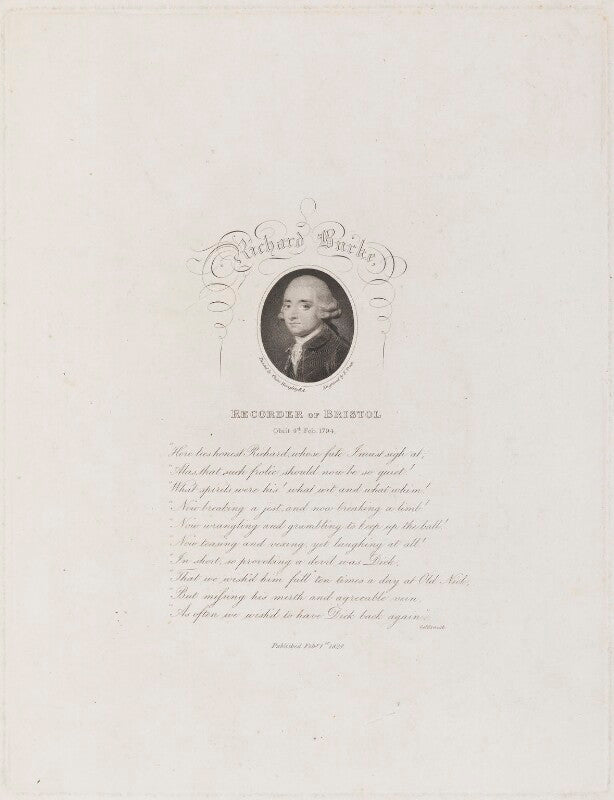 Richard Burke,
RECORDER OF BRISTOL
Obiit 4th Feb. 1794.
"Here lies honest Richard, whose fate I must sigh at,
"Alas, that such frolic should now be so quiet!
"What spirits were his! what wit and what whim!
"Now breaking a jest, and now breaking a limb!
"Now wrangling and grumbling to keep up the ball!
"Now teasing and vexing, yet laughing at all!
"In short, so provoking a devil was Dick,
"That we wish'd him full ten times a day at Old Nick,
"But missing his mirth and agreeable vein
"As often we wish'd to have Dick back again."
Published Feby. 1st